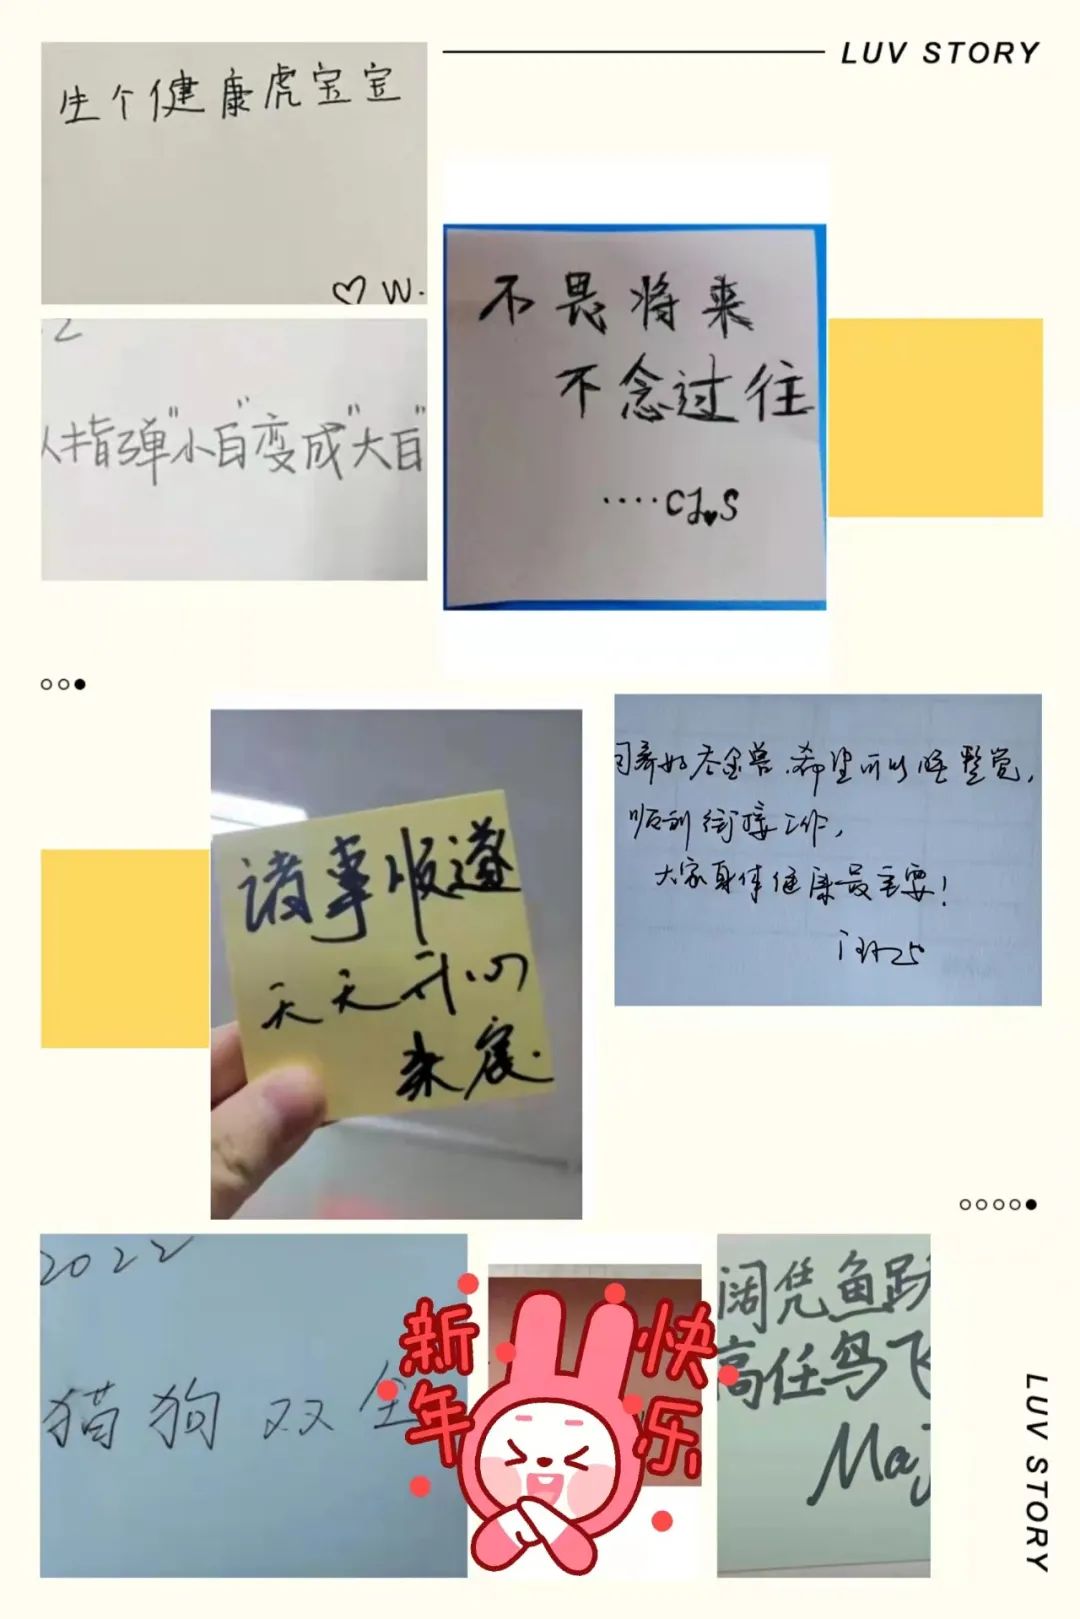 LUV STORY
生个健康虎宝宝
♡ W.
从指弹"小白"变成"大白"
不畏将来
不念过往
....CJ♥S
养好吞金兽,希望可以睡整觉,
顺利衔接工作,
大家身体健康最重要!
诸事顺遂
天天开心
2022
猫狗双全
新年
快乐
阔凭鱼跃
高任鸟飞
LUV STORY